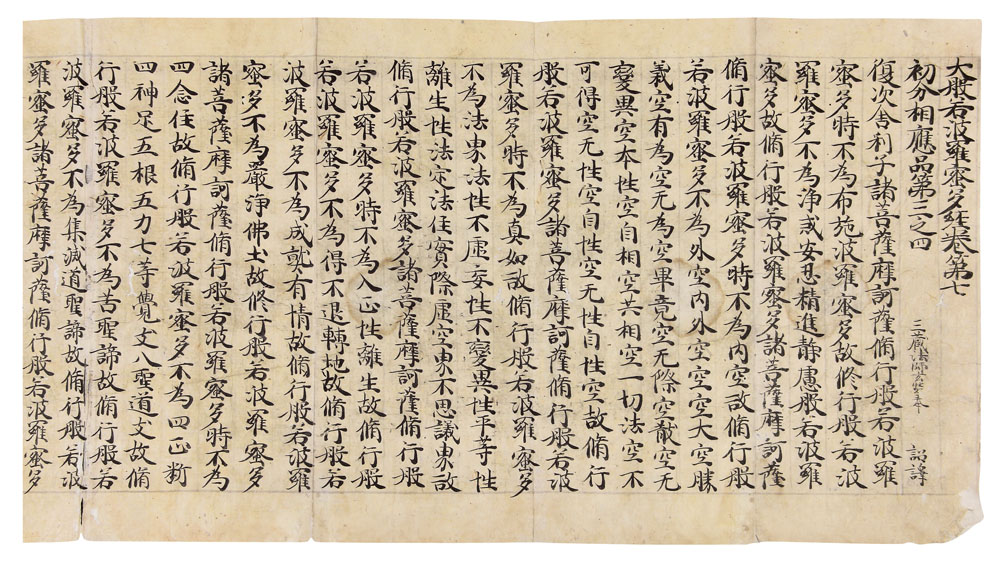 大般若波羅蜜多經卷第七
初分相應品第三之四 三藏法師玄奘奉 詔譯
復次舍利子諸菩薩摩訶薩脩行般若波羅
蜜多時不為布施波羅蜜多故修行般若波
羅蜜多不為淨戒安忍精進靜慮般若波羅
蜜多故脩行般若波羅蜜多諸菩薩摩訶薩
脩行般若波羅蜜多時不為內空故脩行般
若波羅蜜多不為外空內外空空空大空勝
義空有為空无為空畢竟空无際空散空无
變異空本性空自相空共相空一切法空不
可得空无性空自性空无性自性空故脩行
般若波羅蜜多諸菩薩摩訶薩脩行般若波
羅蜜多時不為真如故脩行般若波羅蜜多
不為法界法性不虛妄性不變異性平等性
離生性法定法住實際虛空界不思議界故
脩行般若波羅蜜多諸菩薩摩訶薩脩行般
若波羅蜜多時不為入正性離生故脩行般
若波羅蜜多不為得不退轉地故脩行般若
波羅蜜多不為成就有情故脩行般若波羅
蜜多不為嚴淨佛土故修行般若波羅蜜多
諸菩薩摩訶薩脩行般若波羅蜜多時不為
四念住故脩行般若波羅蜜多不為四正斷
四神足五根五力七等覺支八聖道支故脩
行般若波羅蜜多不為苦聖諦故脩行般若
波羅蜜多不為集滅道聖諦故脩行般若波
羅蜜多諸菩薩摩訶薩脩行般若波羅蜜多